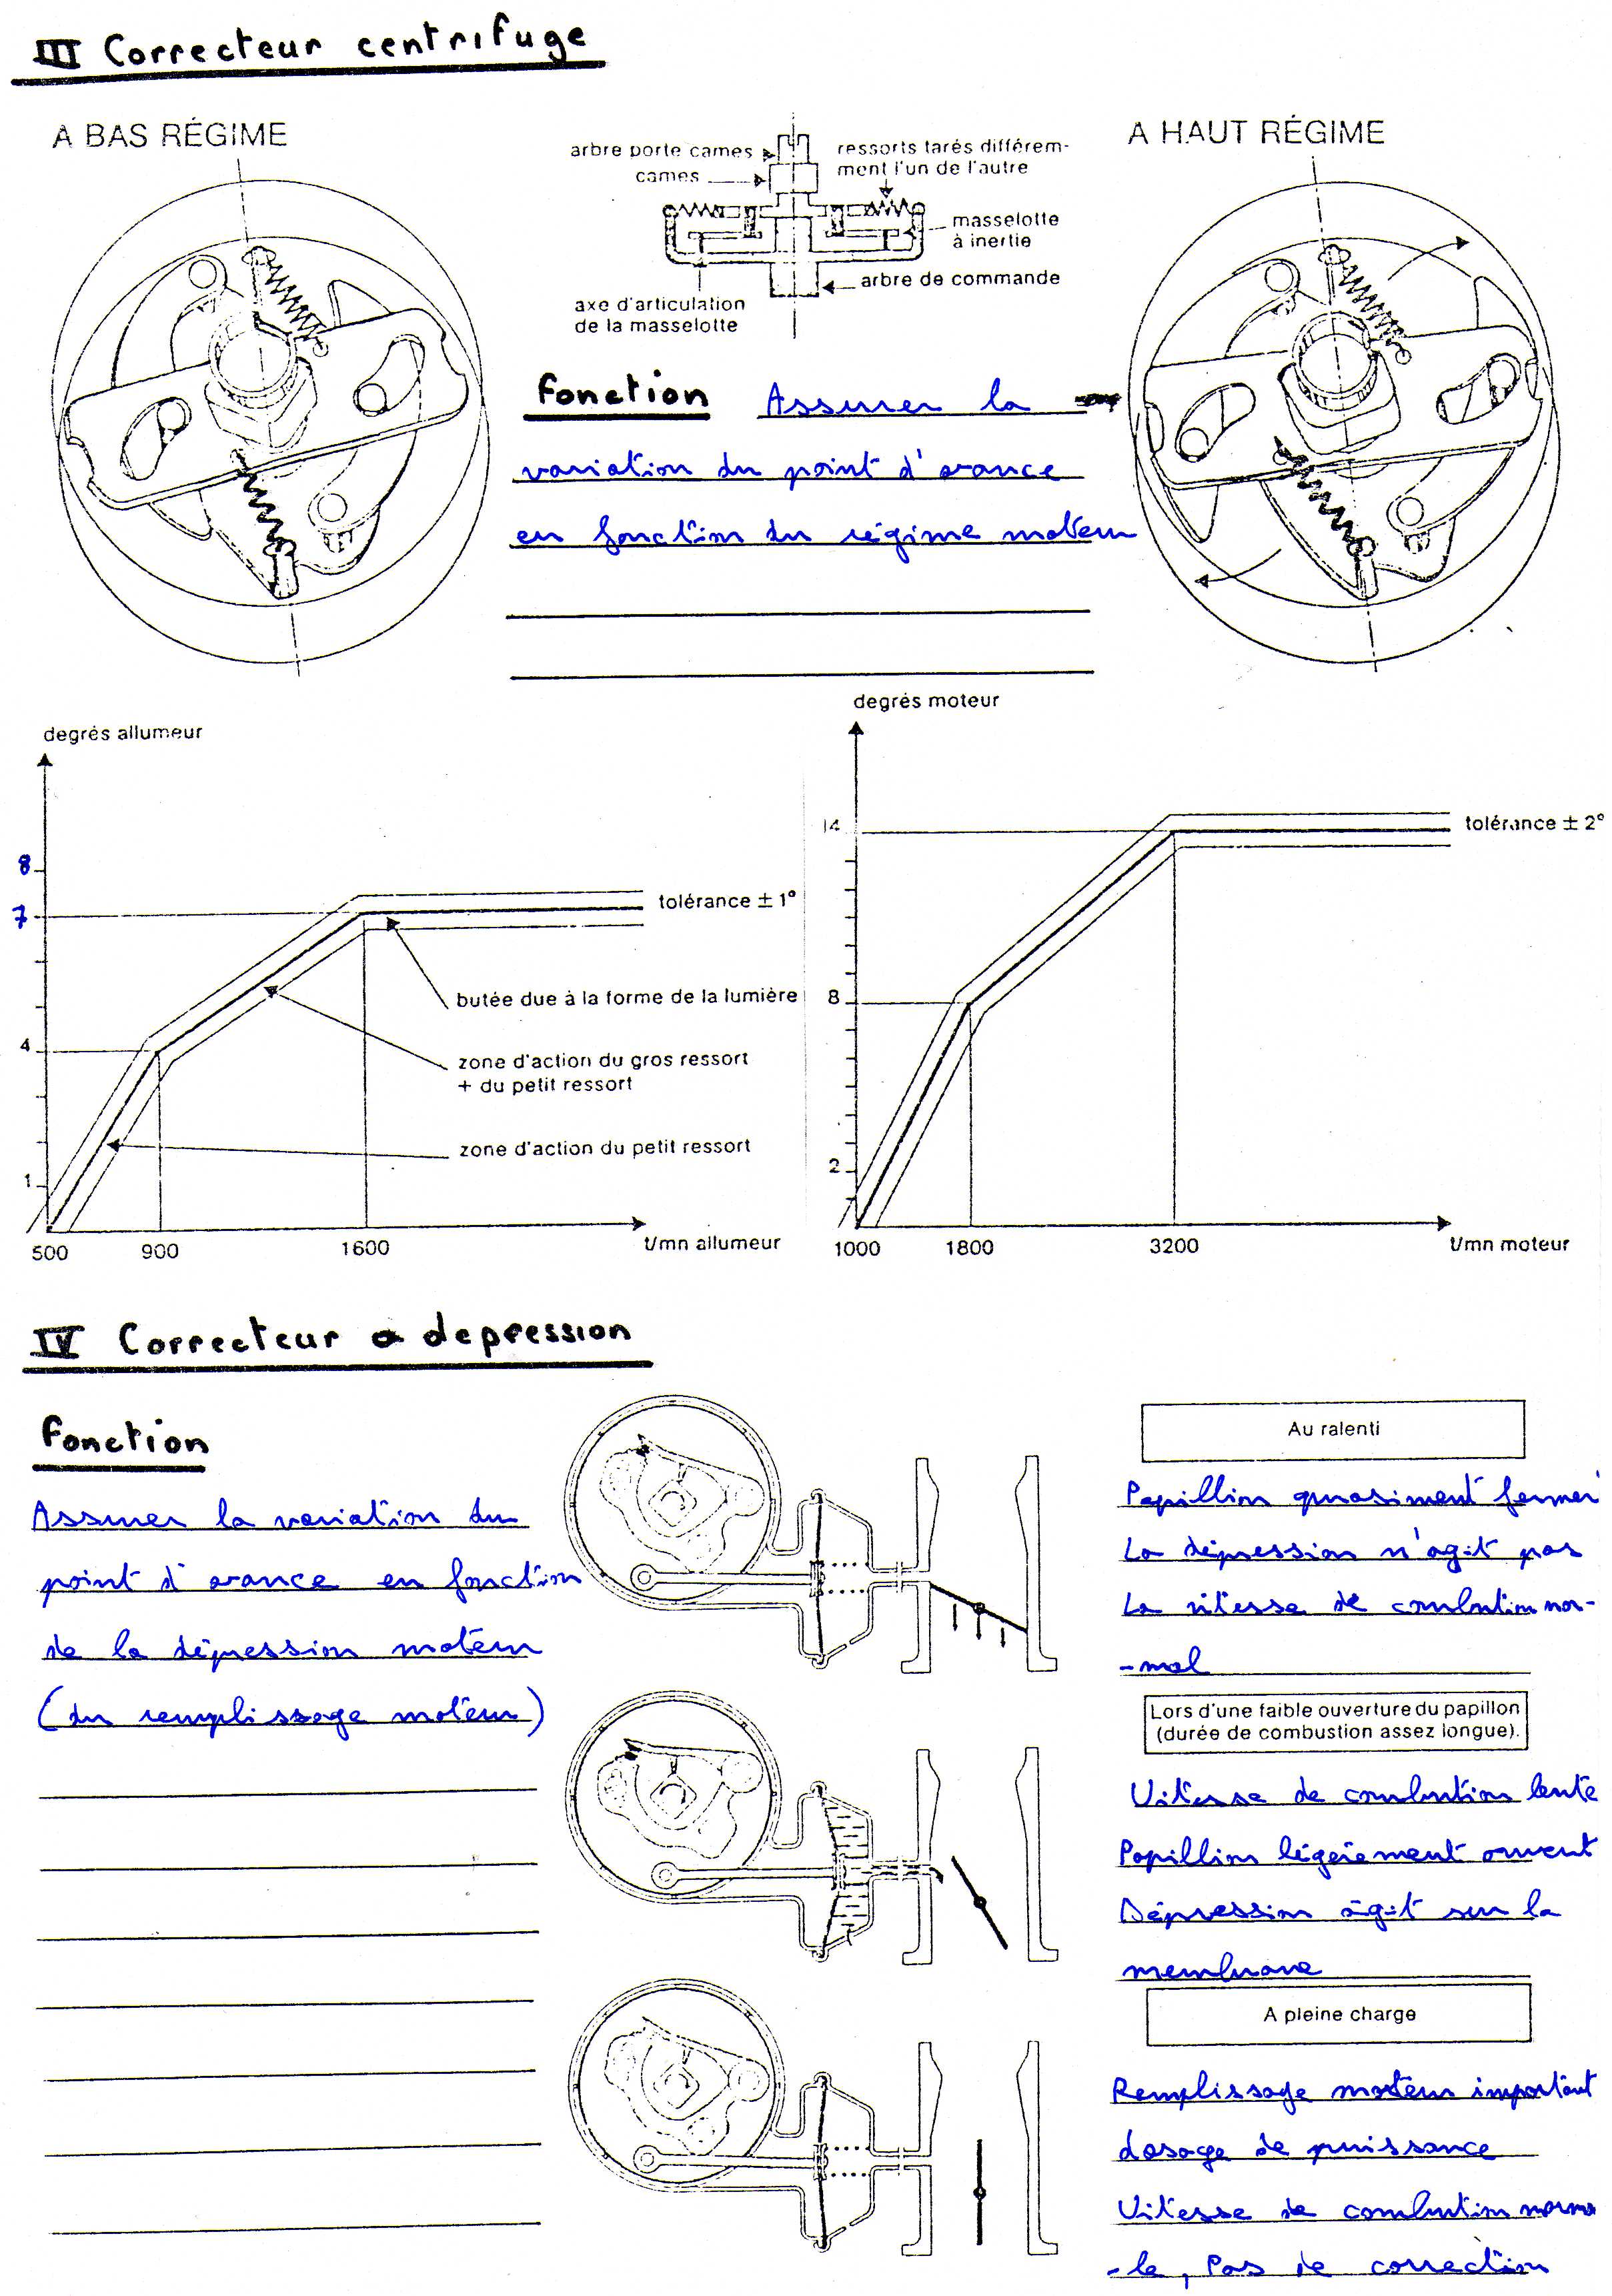 III Correcteur centrifuge
A BAS RÉGIME
arbre porte cames
cames
ressorts tarés différem-
ment l'un de l'autre
masselotte
à inertie
arbre de commande
axe d'articulation
de la masselotte
A HAUT RÉGIME
Fonction Assurer la
variation du point d'avance
en fonction du régime moteur
degrés allumeur
8
7
4
1
500
900
1600
t/mn allumeur
tolérance ± 1°
butée due à la forme de la lumière
zone d'action du gros ressort
+ du petit ressort
zone d'action du petit ressort
degrés moteur
14
8
2
1000
1800
3200
t/mn moteur
tolérance ± 2°
IV Correcteur a depression
Fonction
Assurer la variation du
point d'avance en fonction
de la dépression moteur
(du remplissage moteur)
Au ralenti
Papillion quasiment fermer
La dépression n'agit pas
La vitesse de combution nor-
-mal
Lors d'une faible ouverture du papillon
(durée de combustion assez longue).
Vitesse de combution lente
Papillion légèrement ouvert
Dépression agit sur la
membrane
A pleine charge
Remplissage moteur important
dosage de puissance
Vitesse de combution norma
-le, Pas de correction